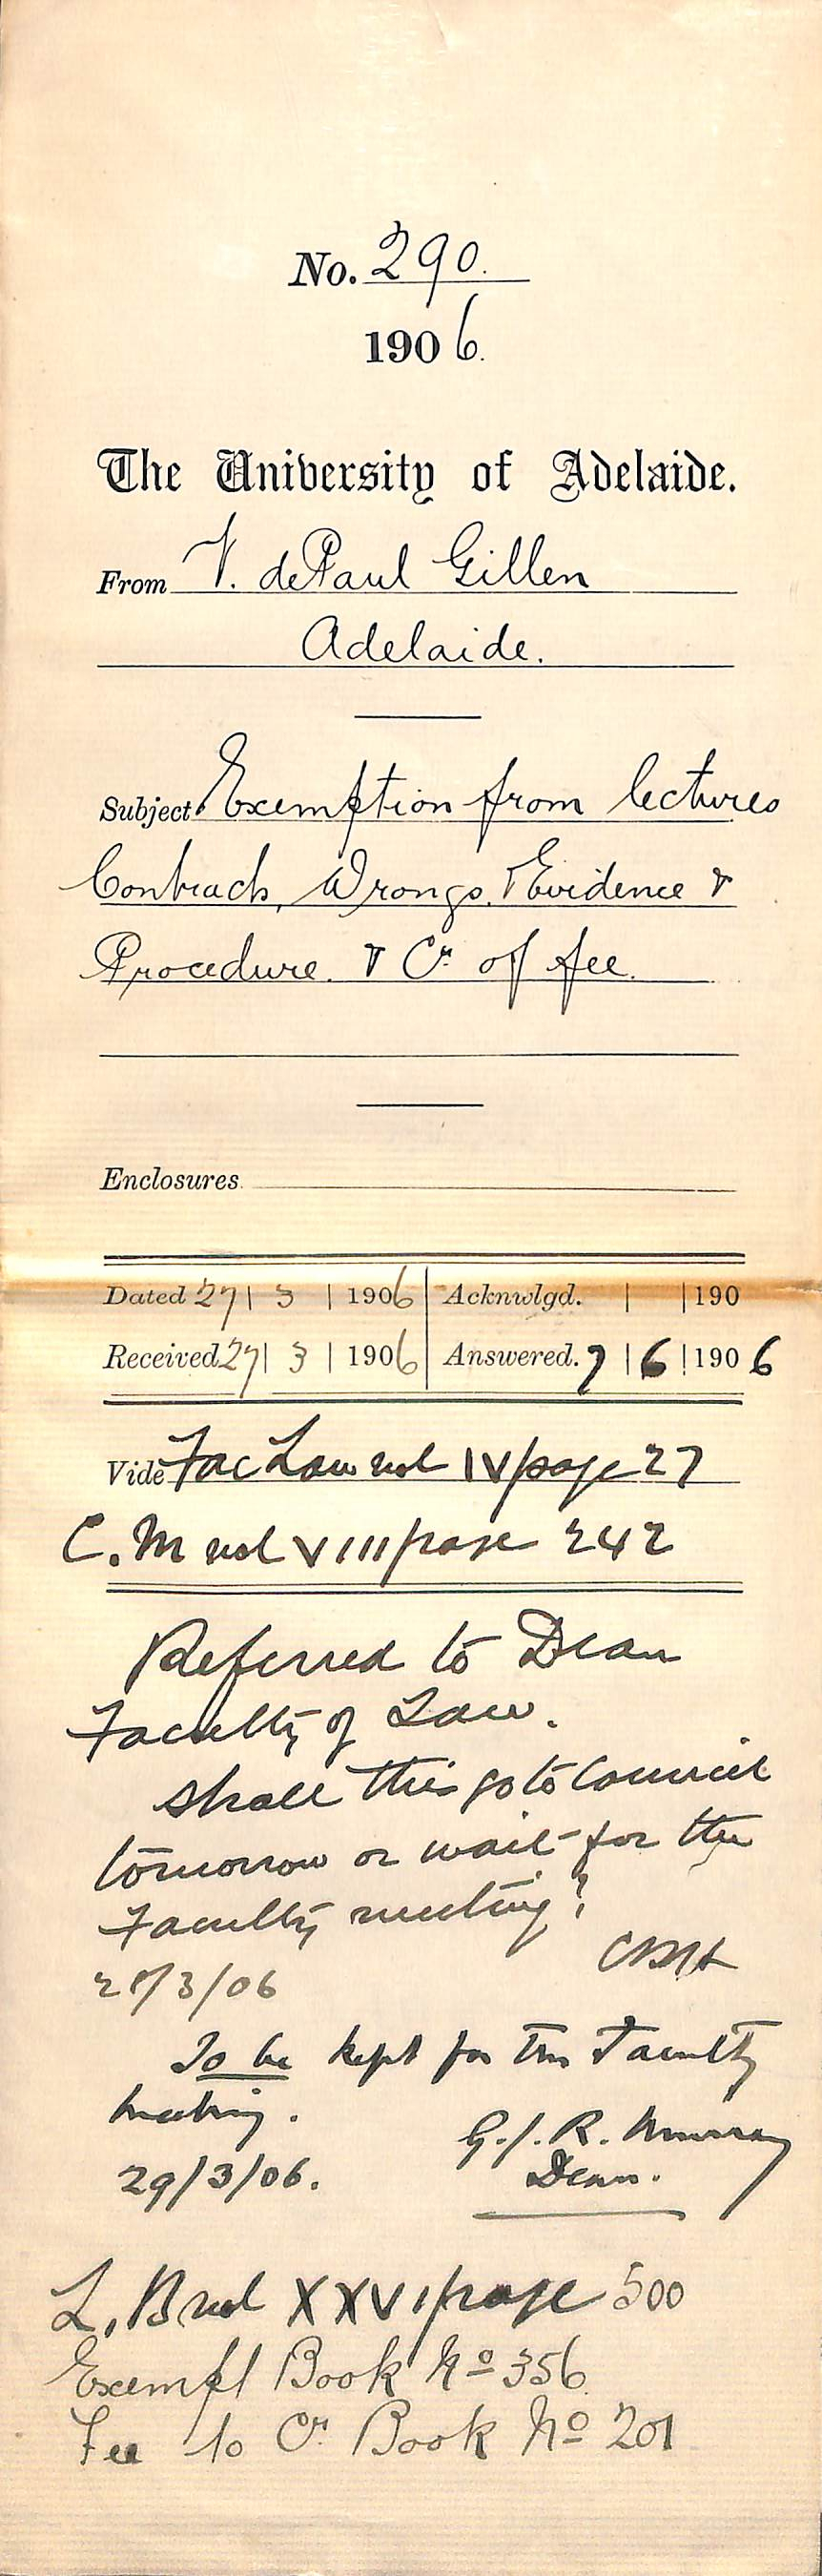 No. 290.
1906.
The University of Adelaide.
From V. dePaul Gillen
Adelaide.
Subject. Exemption from lectures
Contracts, Wrongs, & Evidence &
Procedure. & Cr. of fee.
Enclosures
Dated 27 | 3 | 1906 | Acknwlgd. | | 190
Received 27 | 3 | 1906 | Answered. 7 | 6 | 1906
Vide Fac Law vol IV page 27
C.M vol VIII page 242
Referred to Dean
Faculty of Law.
Shall this go to Council
tomorrow or wait for the
Faculty meeting?
CRH
28/3/06
To be kept for the Faculty
meeting.
G.J.R. Murray
Dean.
29/3/06.
L.B vol XXVI page 500
Exempt Book No 356
Fee to Cr. Book No 201